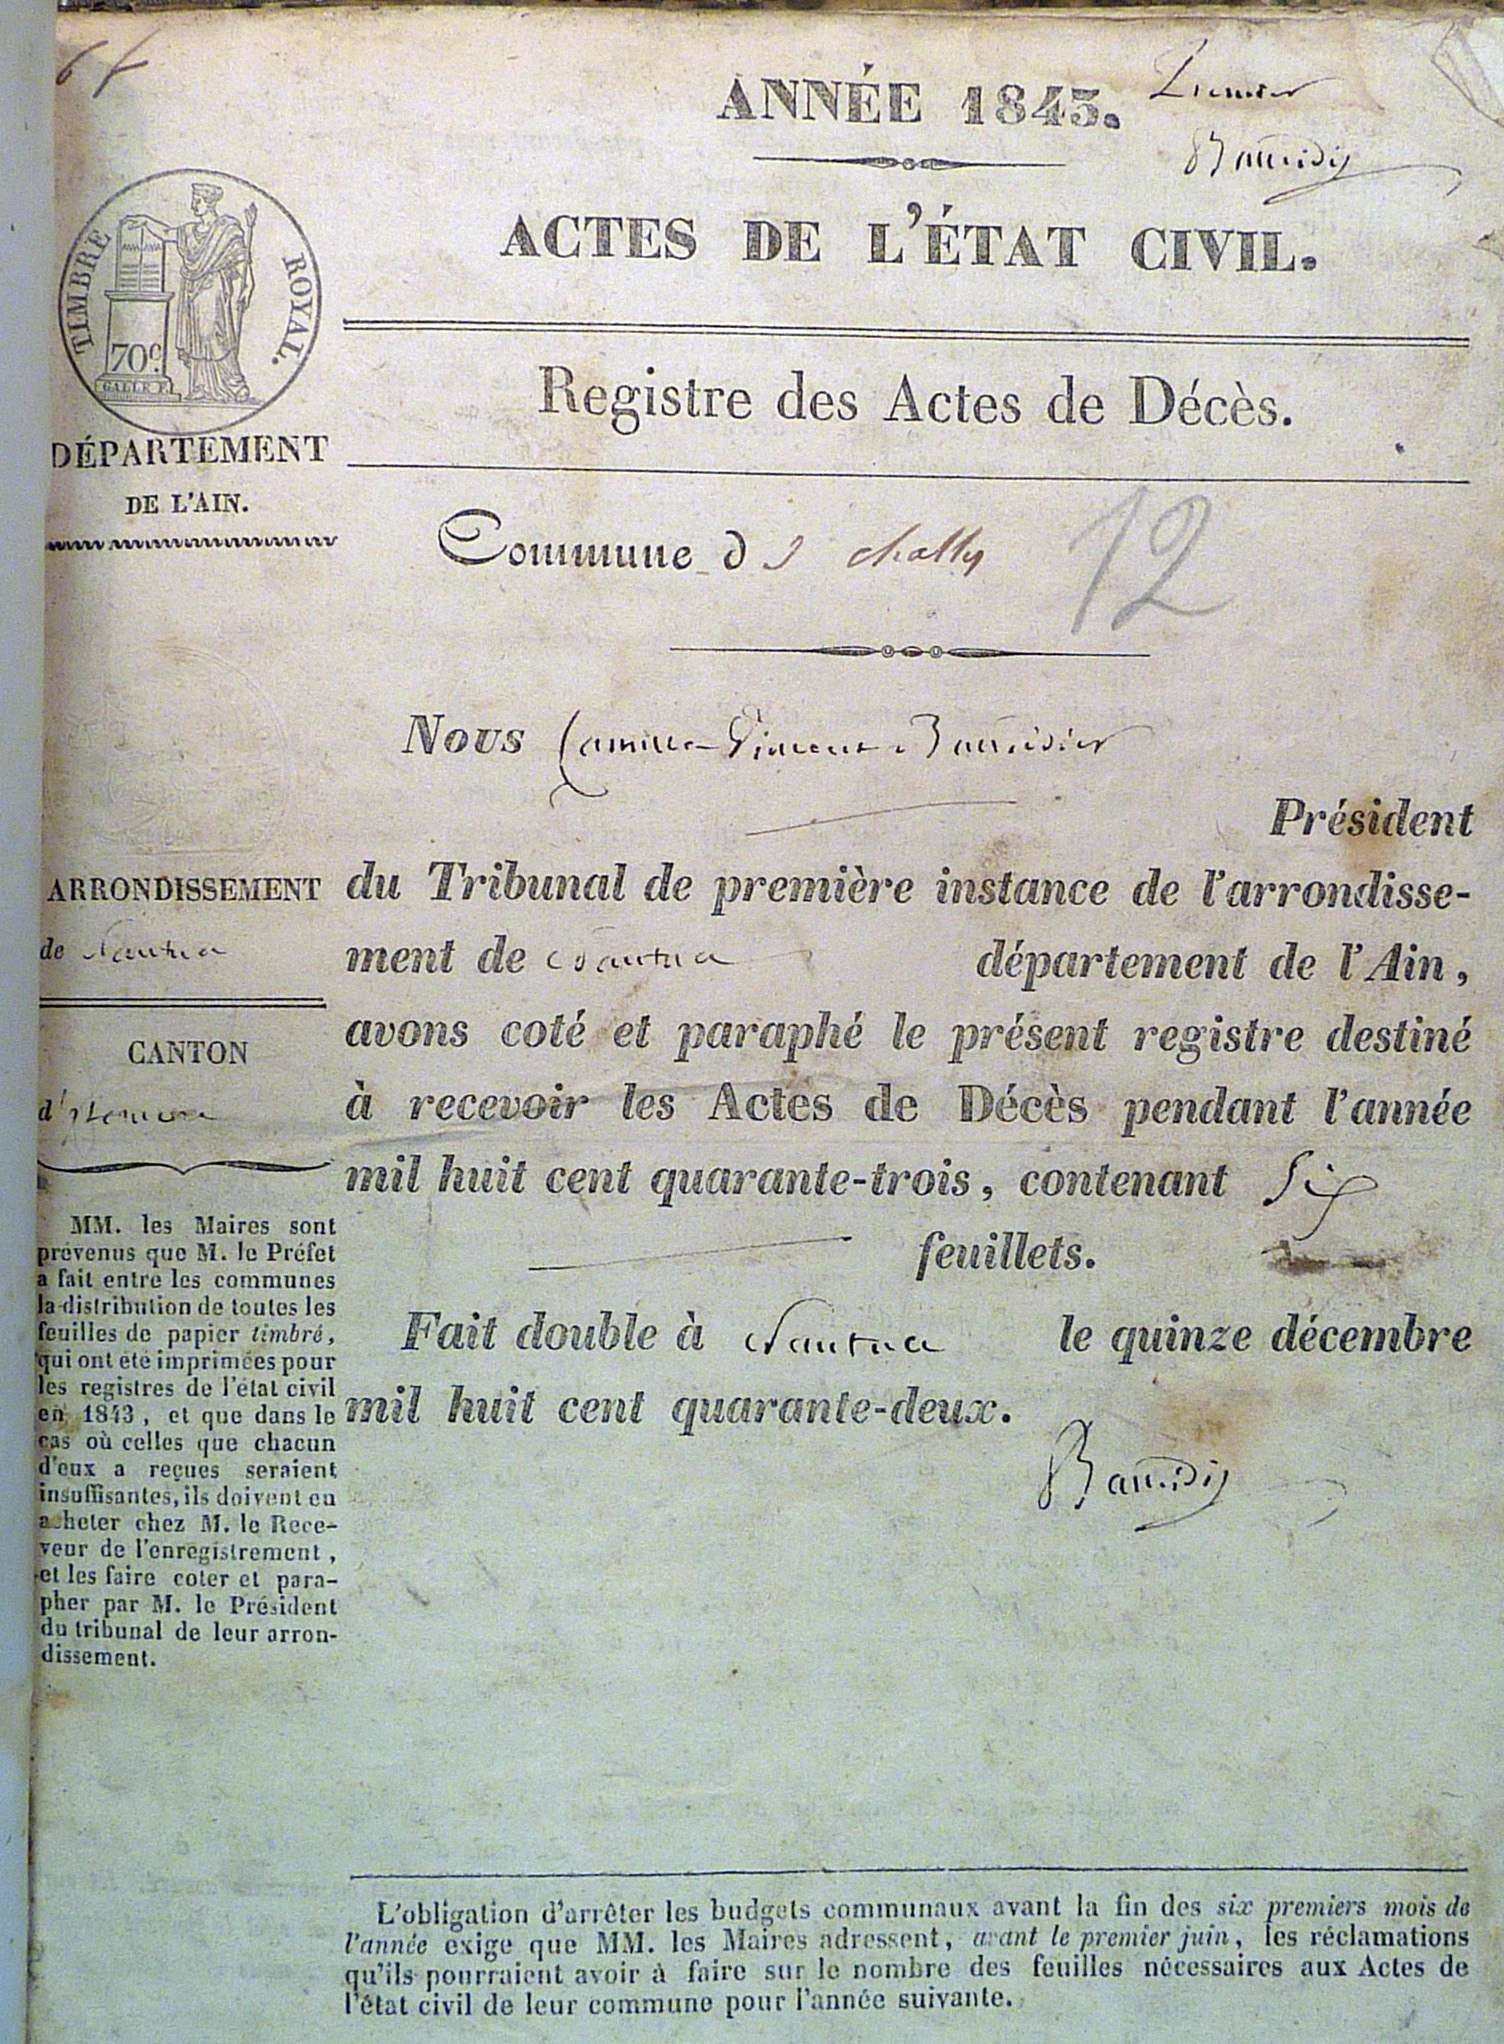 ANNÉE 1843.
Premier
ACTES DE L'ÉTAT CIVIL.
TIMBRE ROYAL.
70 c.
GALLE F.
Registre des Actes de Décès.
DÉPARTEMENT
DE L'AIN.
Commune d
12
Nous Camille Vincent
Président
du Tribunal de première instance de l'arrondisse-
ment de Nantua département de l'Ain,
avons coté et paraphé le présent registre destiné
à recevoir les Actes de Décès pendant l'année
mil huit cent quarante-trois, contenant Six
feuillets.
Fait double à Nantua le quinze décembre
mil huit cent quarante-deux.
ARRONDISSEMENT
de Nantua
CANTON
d'
MM. les Maires sont
prévenus que M. le Préfet
a fait entre les communes
la distribution de toutes les
feuilles de papier timbré,
qui ont été imprimées pour
les registres de l'état civil
en 1843, et que dans le
cas où celles que chacun
d'eux a reçues seraient
insuffisantes, ils doivent en
acheter chez M. le Rece-
veur de l'enregistrement,
et les faire coter et para-
pher par M. le Président
du tribunal de leur arron-
dissement.
L'obligation d'arrêter les budgets communaux avant la fin des six premiers mois de
l'année exige que MM. les Maires adressent, avant le premier juin, les réclamations
qu'ils pourraient avoir à faire sur le nombre des feuilles nécessaires aux Actes de
l'état civil de leur commune pour l'année suivante.